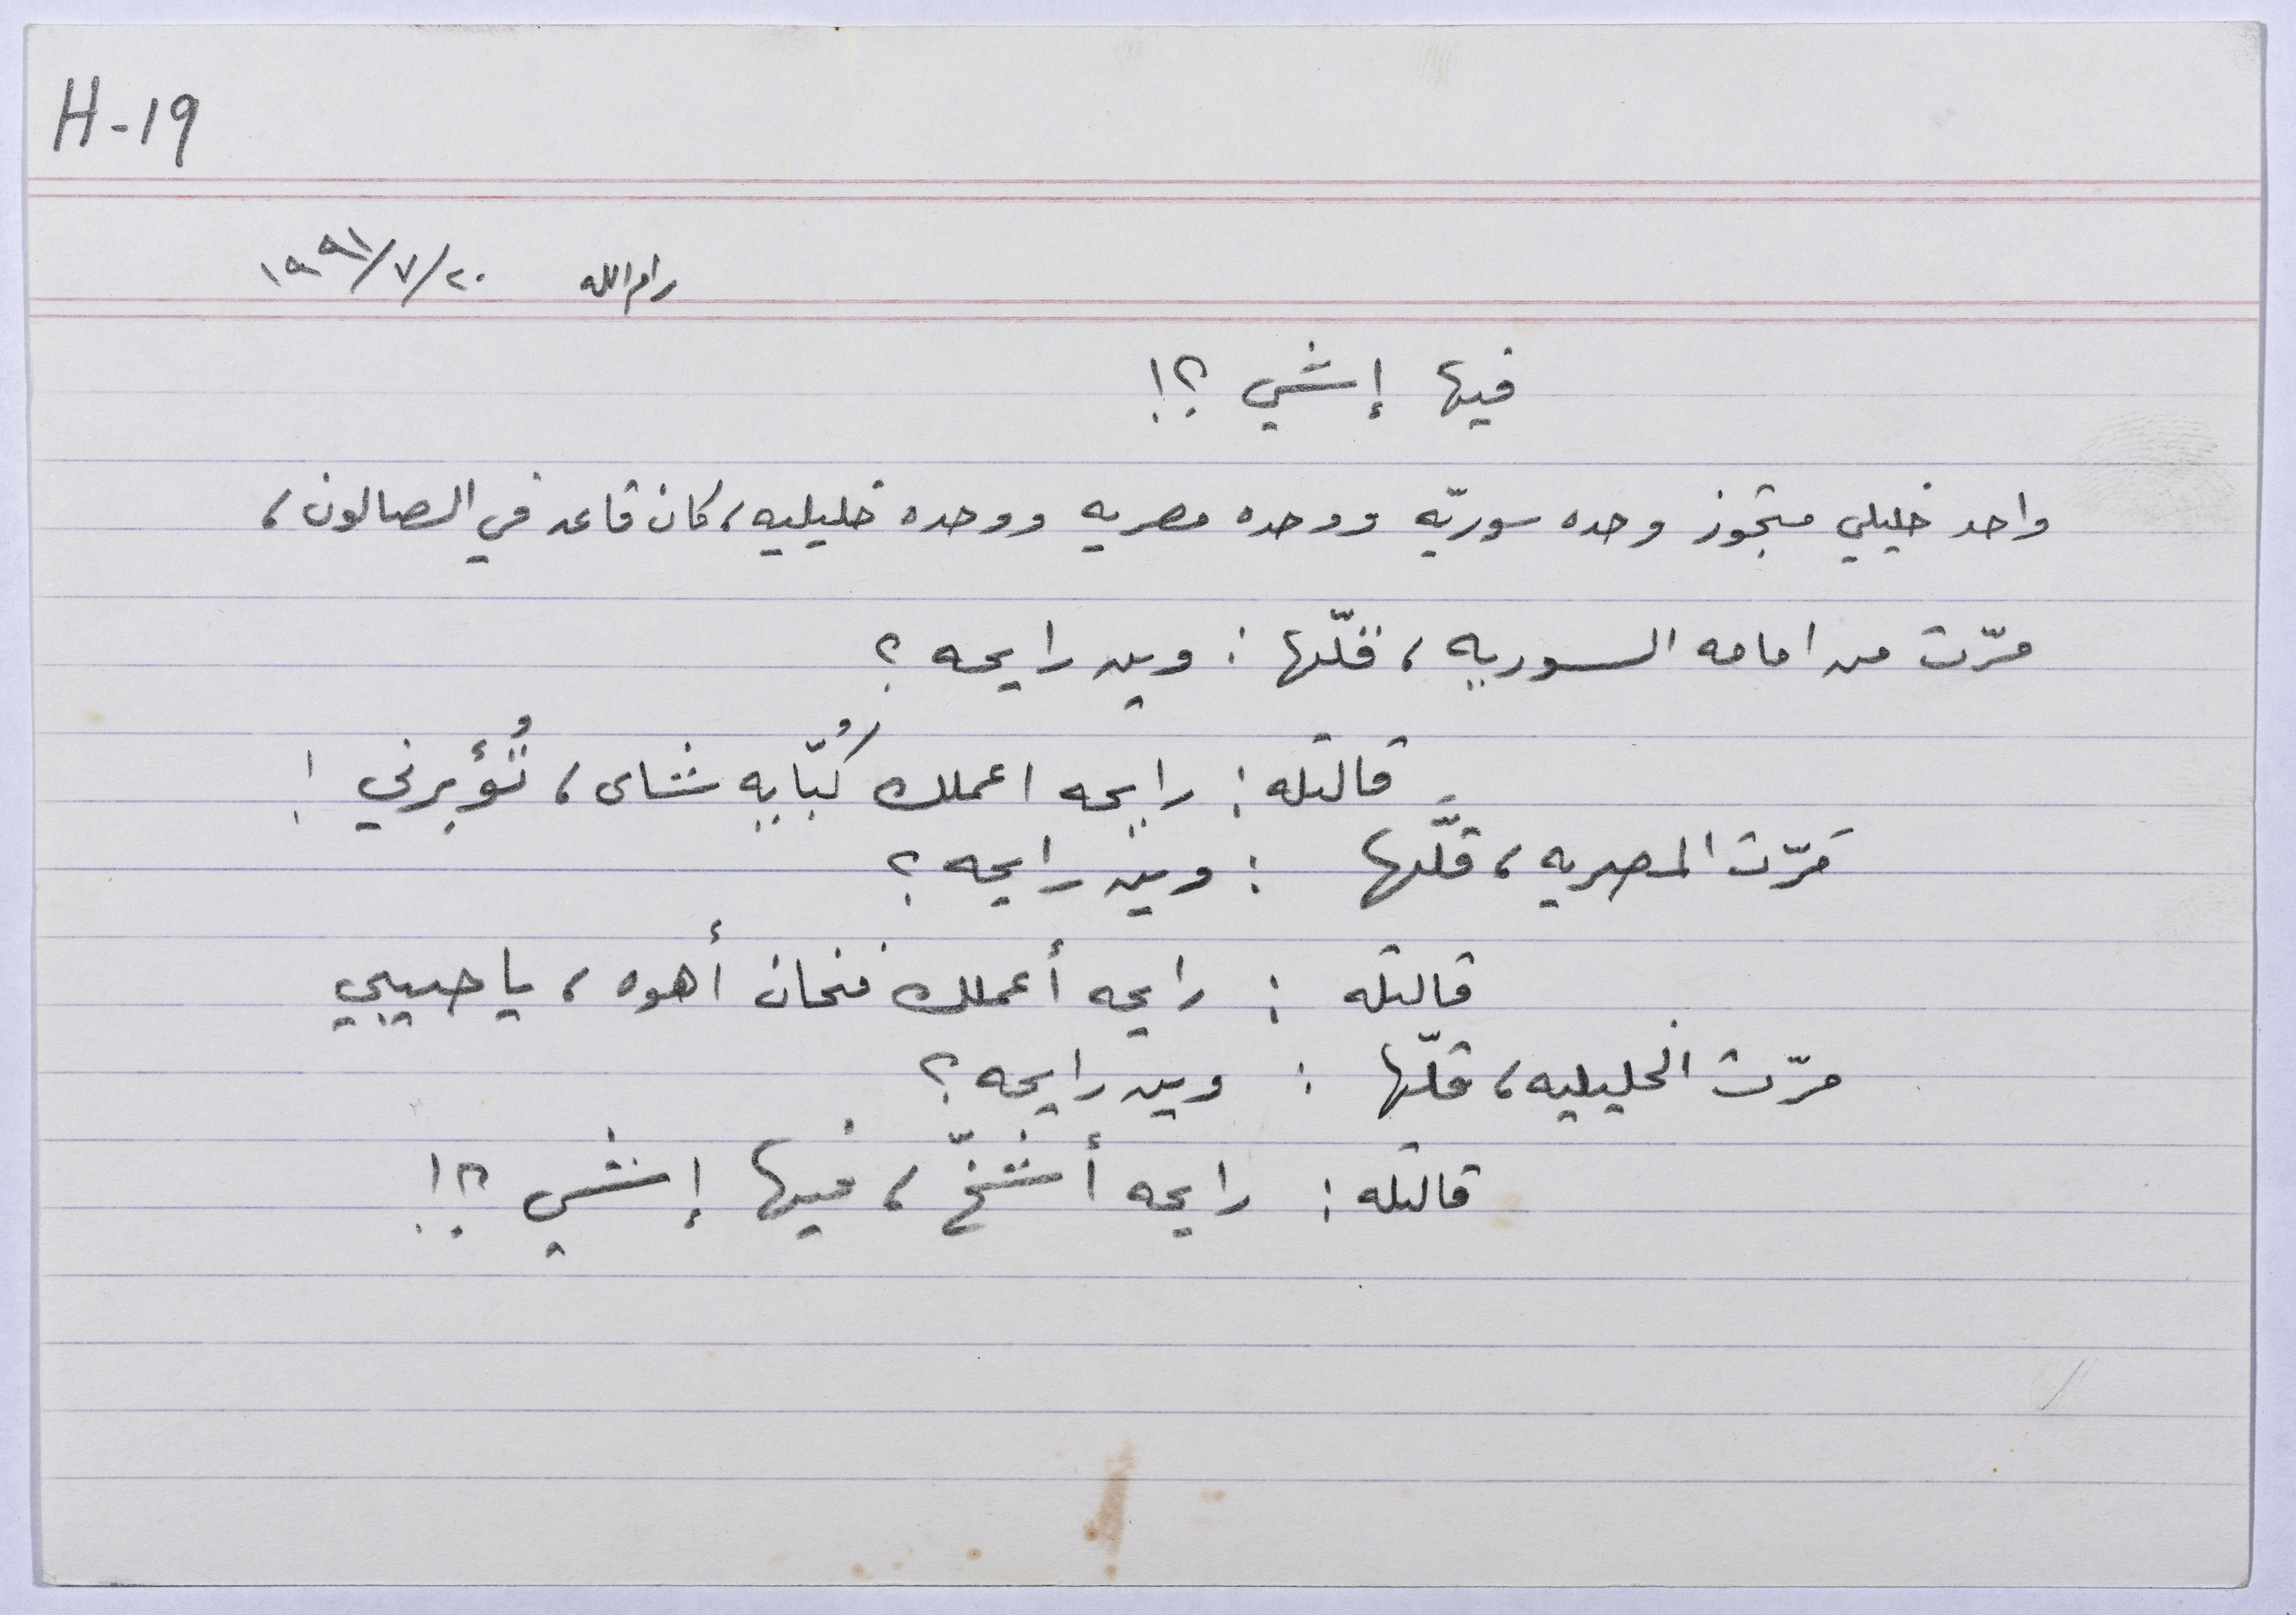 H-19
رام الله ٢٠/٧/١٩٩١
فيها إشي ؟!
واحد خليلي متجوز وحده سوريّه ووحده مصريه ووحده خليليه، كان قاعد في الصالون،
مرّت من امامه السوريه، فقلّها : وين رايحه ؟
قالتله : رايحه اعملك كُبّايه شاى، تُؤبرني !
مَرّت المصريه، قلَّها : وين رايحه ؟
قالتله : رايحه أعملك فنجان أهوه، يا حبيبي
مرّت الخليليه، قلّها : وين رايحه ؟
قالتله : رايحه أشخّ، فيها إشي ؟!